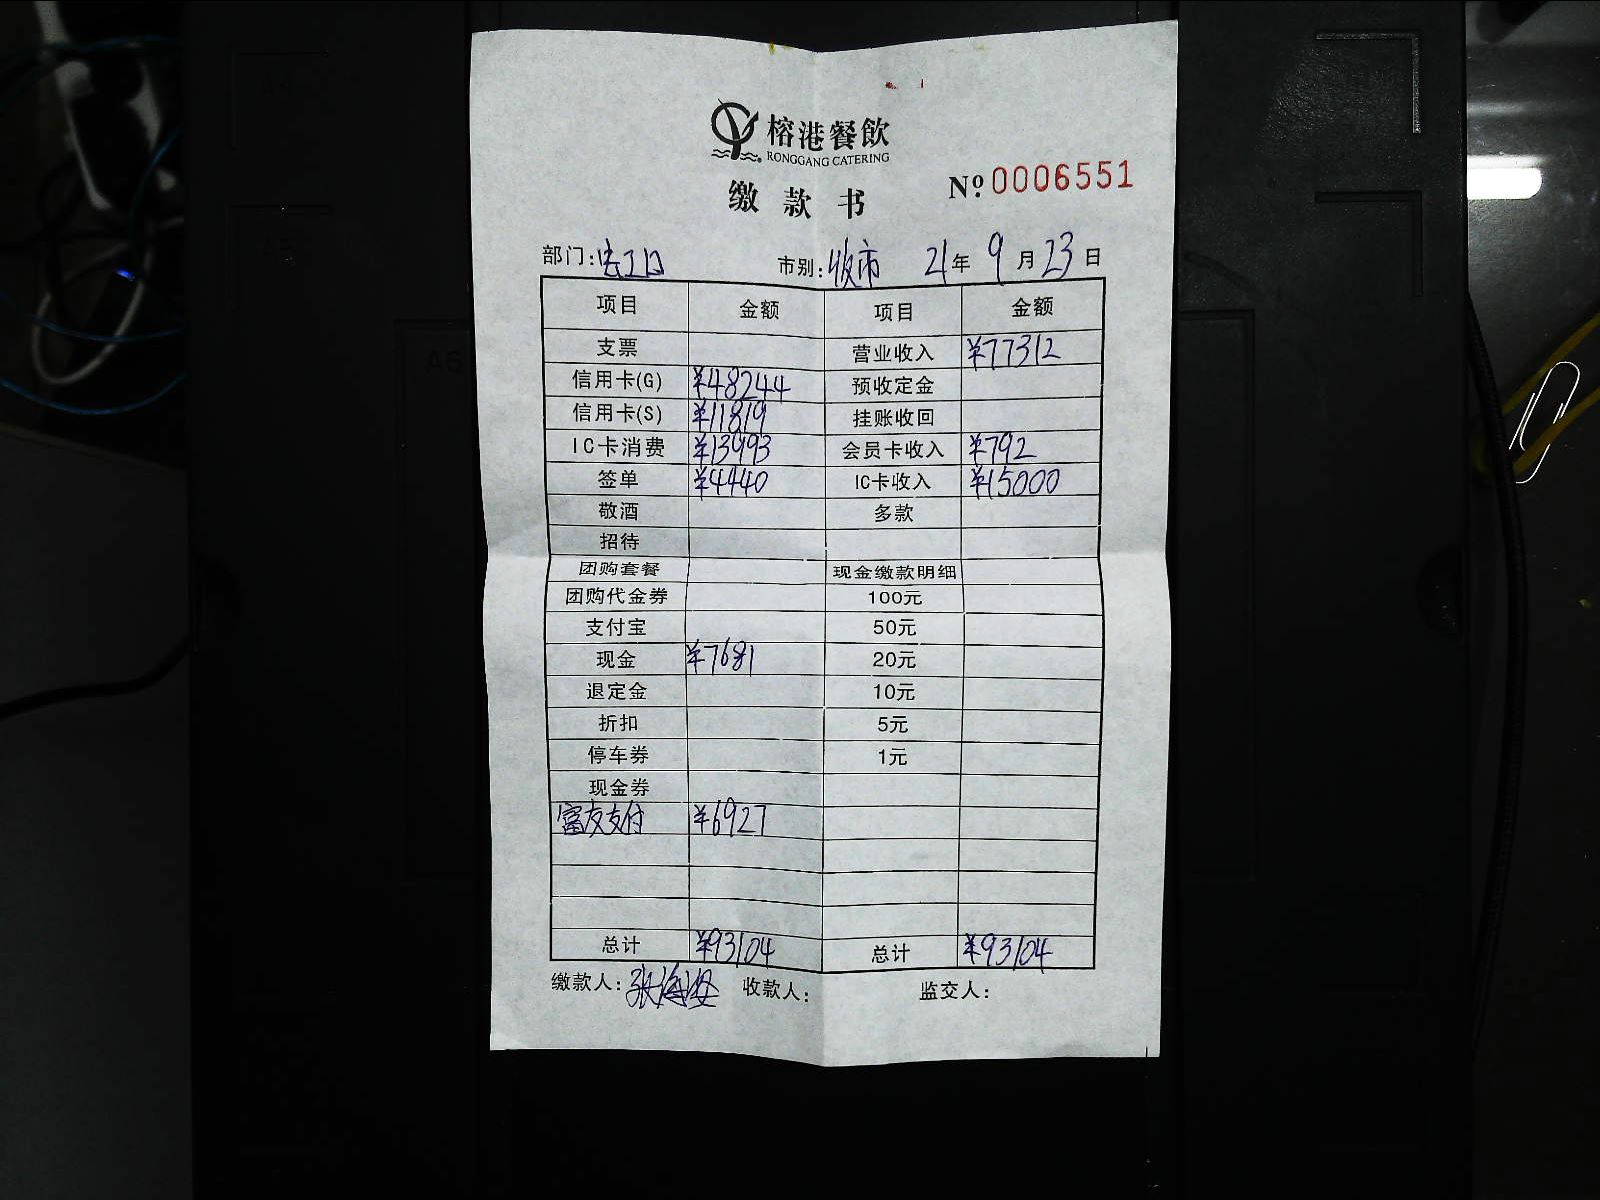 榕港餐飲
RONGGANG CATERING
缴款书 № 0006551
部门: 市别: 收市 21年 9月 23日
项目 金额 项目 金额
支票 营业收入 ¥77312
信用卡(G) ¥48244 预收定金
信用卡(S) ¥11819 挂账收回
IC卡消费 ¥13993 会员卡收入 ¥792
签单 ¥4440 IC卡收入 ¥15000
敬酒 多款
招待
团购套餐 现金缴款明细
团购代金券 100元
支付宝 50元
现金 ¥7681 20元
退定金 10元
折扣 5元
停车券 1元
现金券
富友支付 ¥6927
总计 ¥93104 总计 ¥93104
缴款人: 收款人: 监交人: